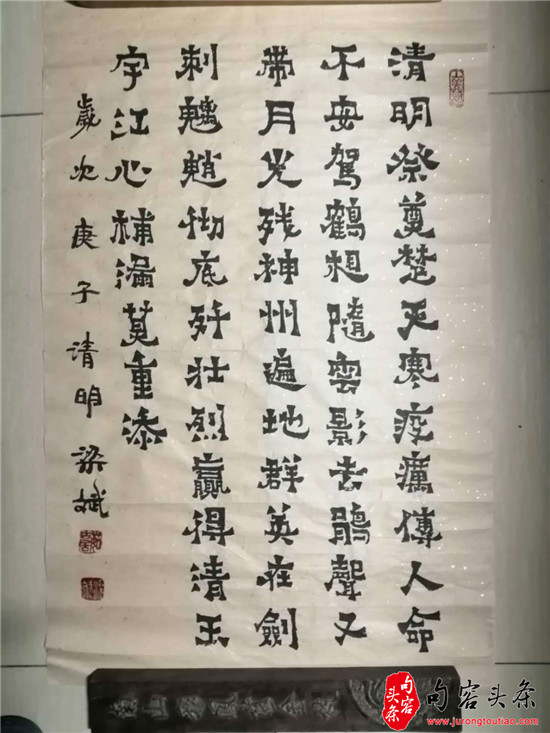 清明祭奠楚天寒疫癘傳人命
不安駕鶴相隨雲影去鵑聲又
帶月光残神州遍地群英在劍
刺魑魈彻底歼壮烈赢得清玉
宇江心補漏莫重添
歲次庚子清明梁斌
句容头条
句容头条
www.jurongtoutiao.com